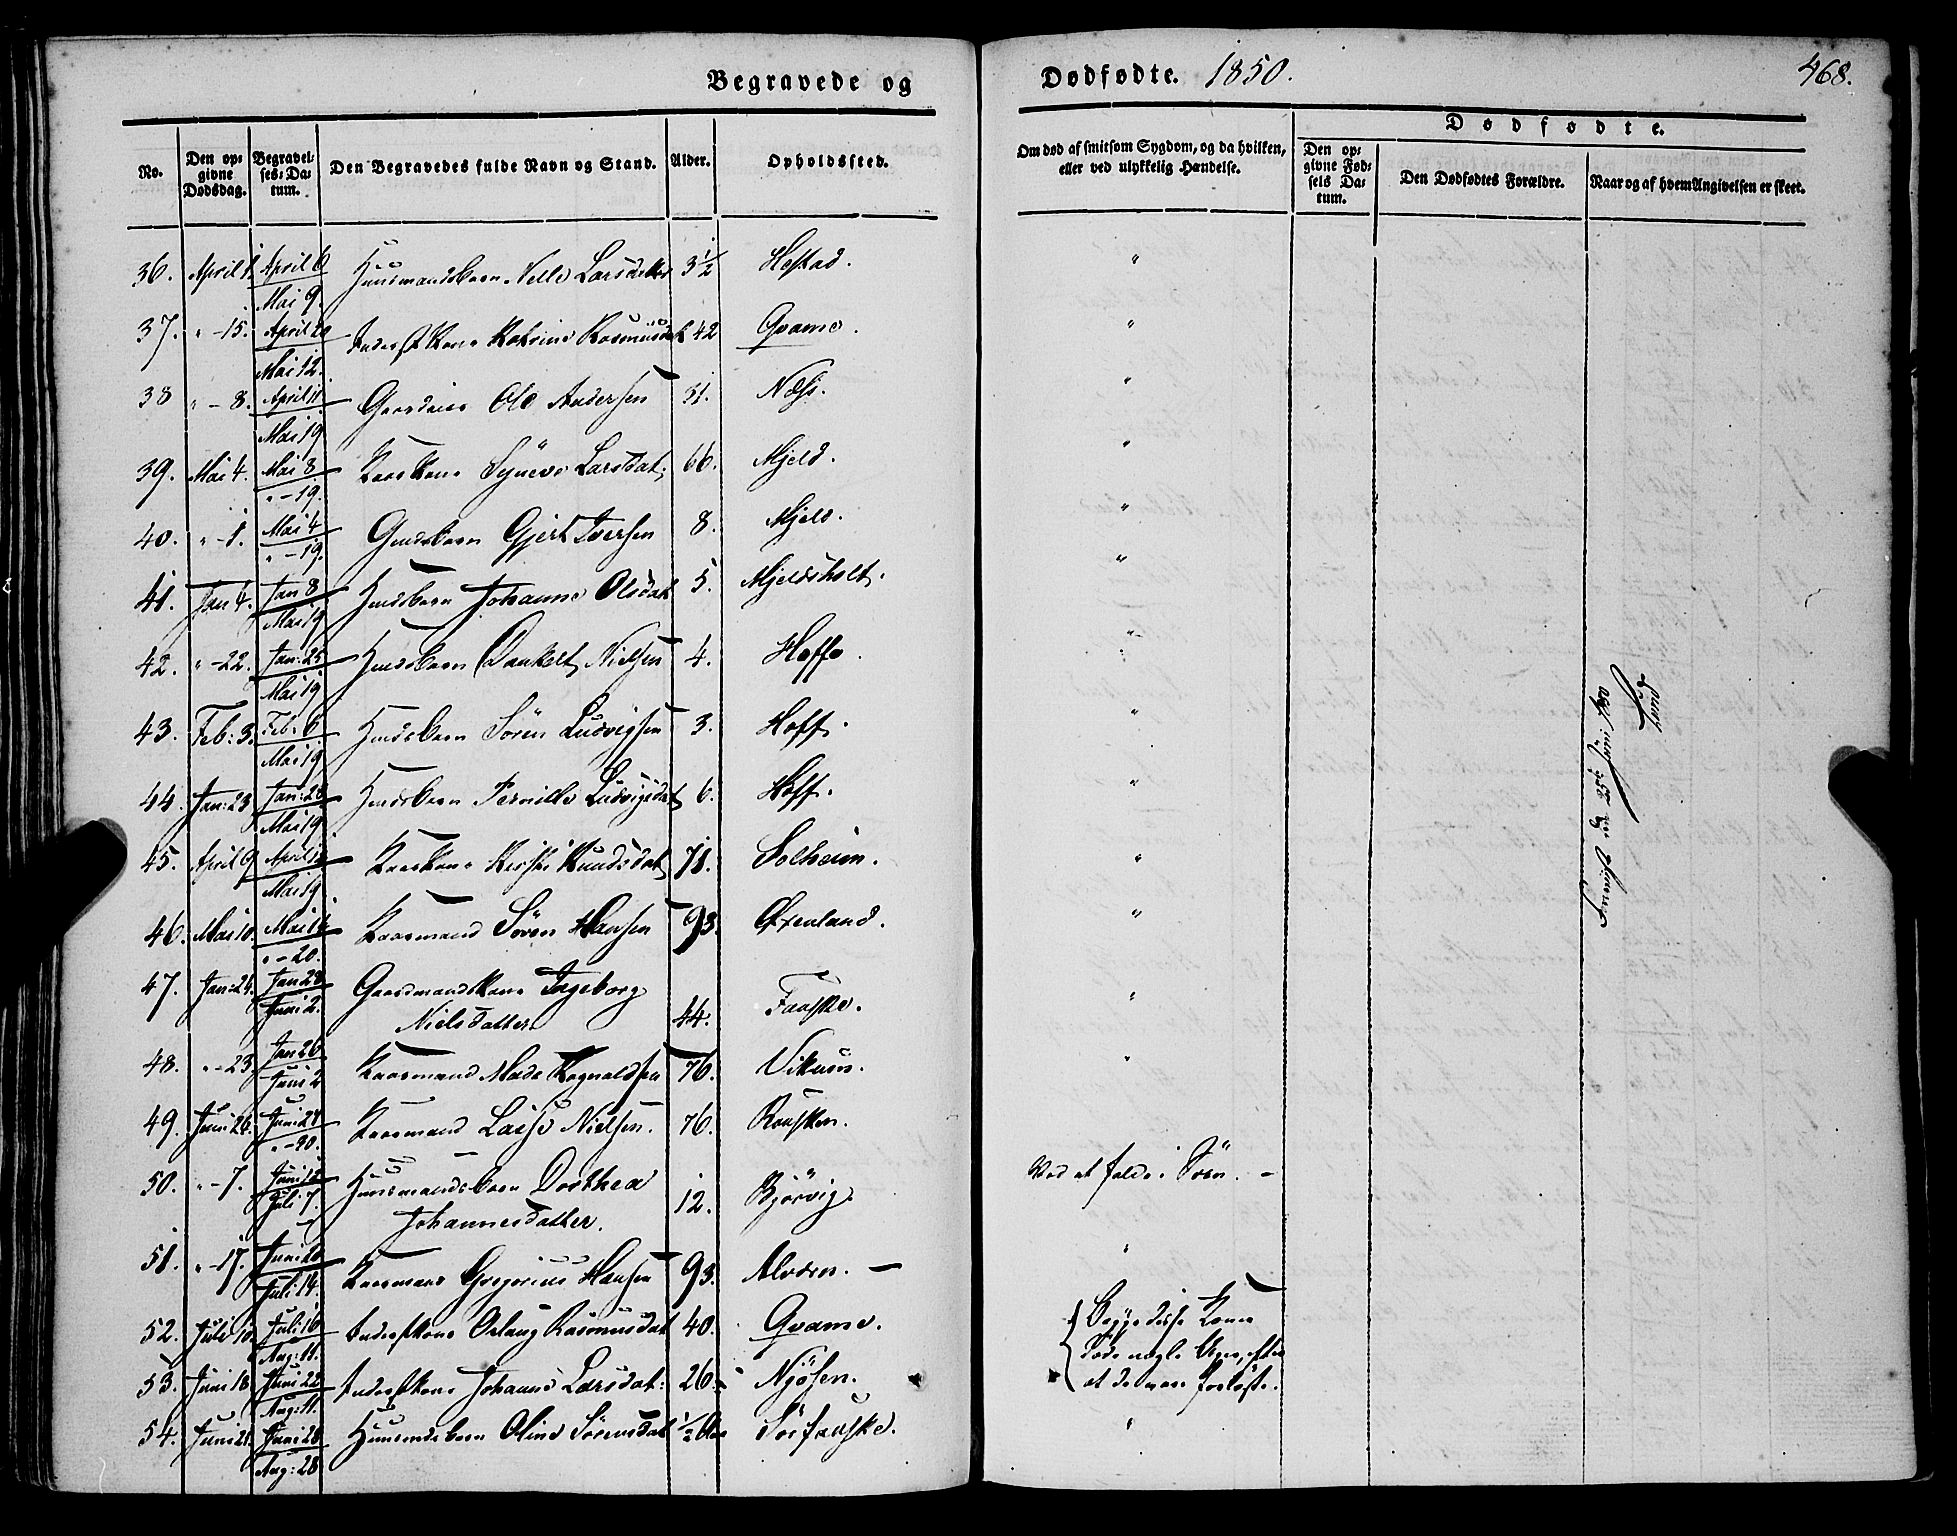 Begravede og
Dødfødte. 1850.
468.
No.
Den opgivne Dødsdag.
Begravelses-Datum.
Den Begravedes fulde Navn og Stand.
Alder.
Opholdssted.
Om død af smitsom Sygdom, og da hvilken, eller ved ulykkelig Hændelse.
Dødfødte.
Den opgivne Fødsels Datum.
Den Dødfødtes Forældre.
Naar og af hvem Angivelsen er skeet.
36. April 1. April 6 Mai 9. Huusmandsbarn Nille Larsdatter 3½ Hestad. "
37. " -15. April 20 Mai 12. Inderstkone Katrine Rasmusdat 42 Qvame. "
38 " - 8. April 11. Mai 19 Ole Andersen 31. Næss. "
39. Mai 4. Mai 8 " -19. Kaarkone Synneve Larsdat; 66. Mjeld. "
40. " -1. Mai 4 " -19. Grdsbarn Gjert Iversen 8. Mjeld. "
41. Jan 4. Jan 8 Mai 19 Hmdsbarn Johanne Olsdat 5. Mjeldsholt. "
42. " -22. Jan: 25 Mai 19 Hmdsbarn Dankelt Nielsen 4. Hoffe. "
43. Feb: 3. Feb: 6 Mai 19 Hmdsbarn Søren Ludvigsen 3. Hoff. "
44. Jan: 23 Jan: 28 Mai 19 Hmdsbarn Pernille Ludvigsdat 6. Hoff. "
45. April 9 April Mai 19 Kaarkone Knudsdat 71. Solheim. "
46. Mai 10. Mai 14 " -20. Kaarmand Søren Hansen 93. Öxenland. "
47. Jan: 24. Jan 28 Juni 2. Gaardmandskone Ingeborg
Nielsdatter 44. Fauske. "
48. " -23. Jan 26 Juni 2 Kaarmand Mads Ragnaldsen 76. Vikum. "
49. Juni 26. Juni 27 " -30. Kaarmand Lasse Nielsen. 76. "
50. " -7. Juni 12 Juli 7. Huusmandsbarn Dorthea
Johannesdatter. 12. Bjørvig. Ved at falde i Søen. -
51. " -17. Juni 20 Juli 14. Kaarmand Gregorius Hansen 93. Alværn. - "
52. Juli 10. Juli 16 Aug: 11. Inderstkone Rasmusdat 40. Qvame. Begge disse Koner
53. Juni 18. Juni 22 Aug: 11. Inderstkone Johanne Larsdat: 26. Njøsen. døde nogle Uger, efter
at de vare forløste.
54. Juni 21. Juni 28 Aug: 28 Huusmdsbarn Oline Sørensdat ½ Aar Sørfauske. "
den 25de Juni 1850
Lund